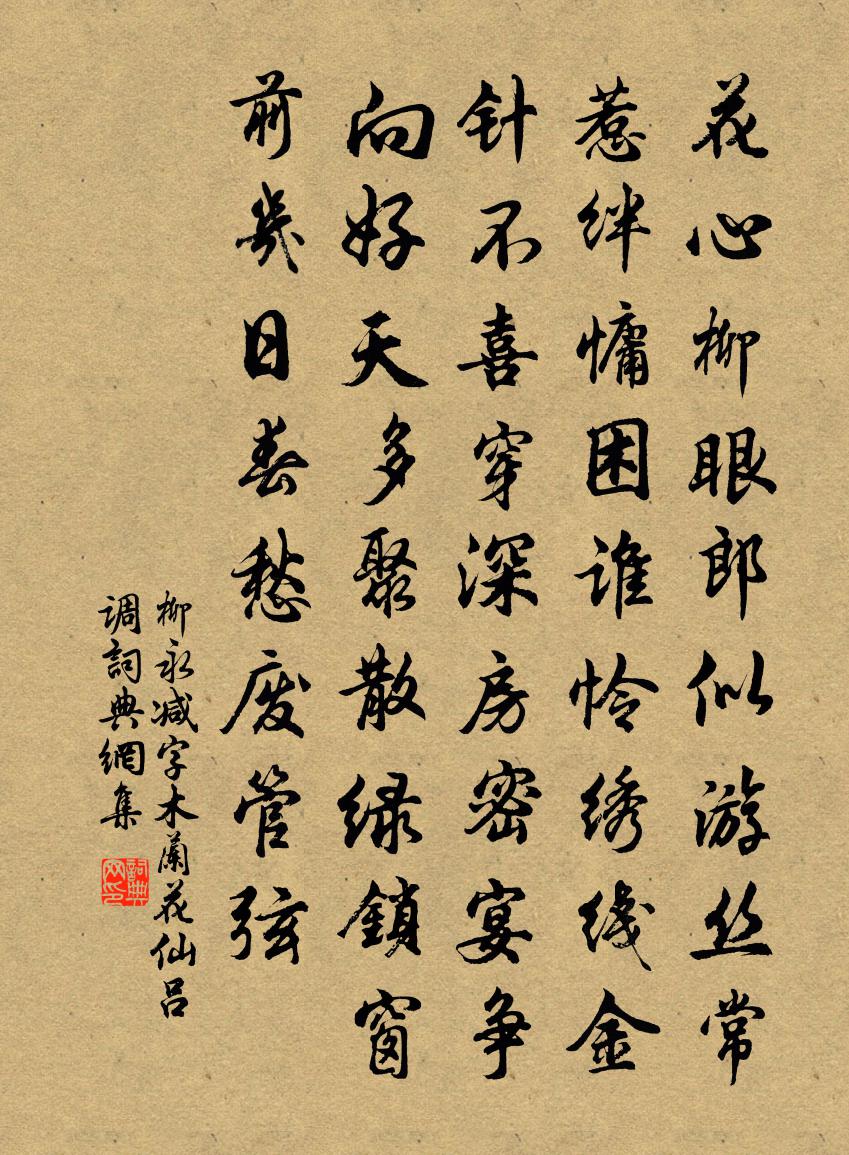 花心柳眼郎似游丝常
惹绊慵困谁怜绣线金
针不喜穿深房密宴争
向好天多聚散绿鎖窗
前幾日春愁废管弦
柳永减字木蘭花仙吕
调詞典網集
詞典
网印